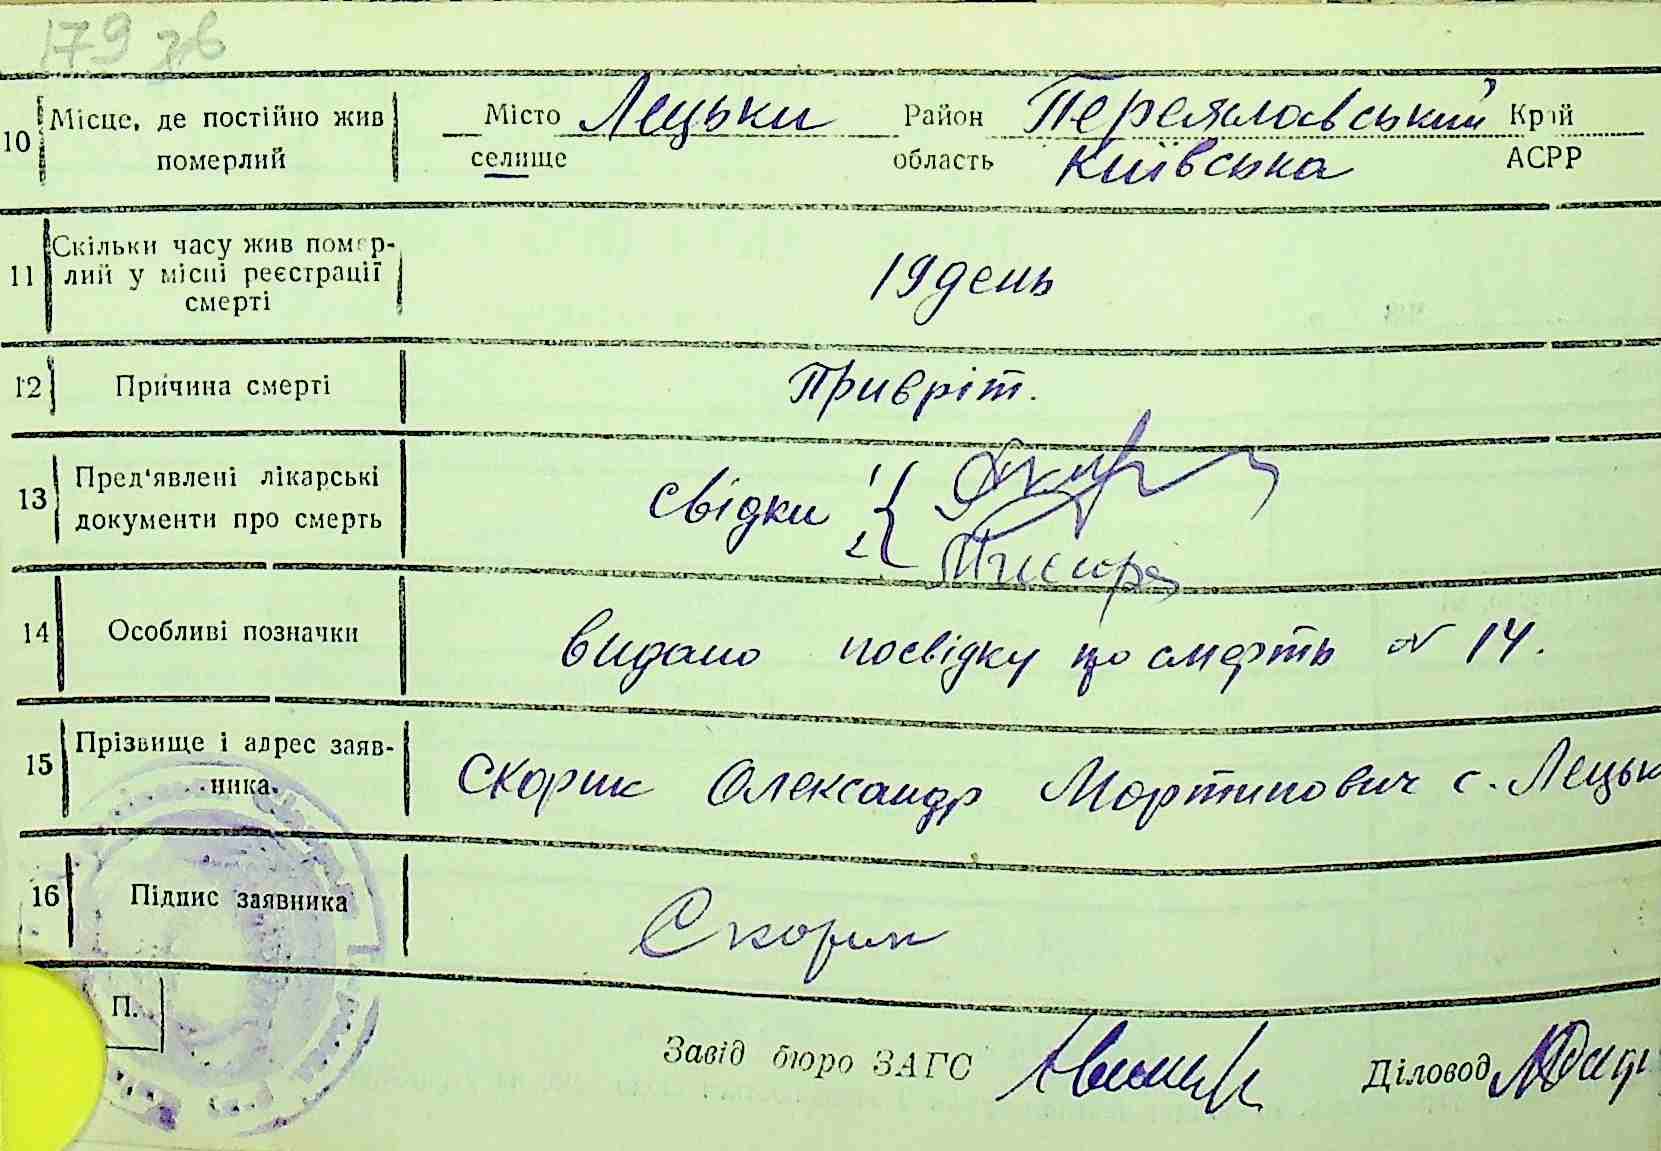 179 зв
10 Місце, де постійно жив Місто Лецьки Район Переяславський Край
померлий селище область Київська АСРР
11 Скільки часу жив помер-
лий у місці реєстрації 19 день
смерті
12 Причина смерті Привріт.
13 Пред'явлені лікарські Свідки 1
документи про смерть 2
14 Особливі позначки видано посвідку про смерть N 14.
15 Прізвище і адрес заяв- Скорик Олександр Мортинович с. Лецьк
ника.
16 Підпис заявника Скорик
П.
Завід бюро ЗАГС Діловод